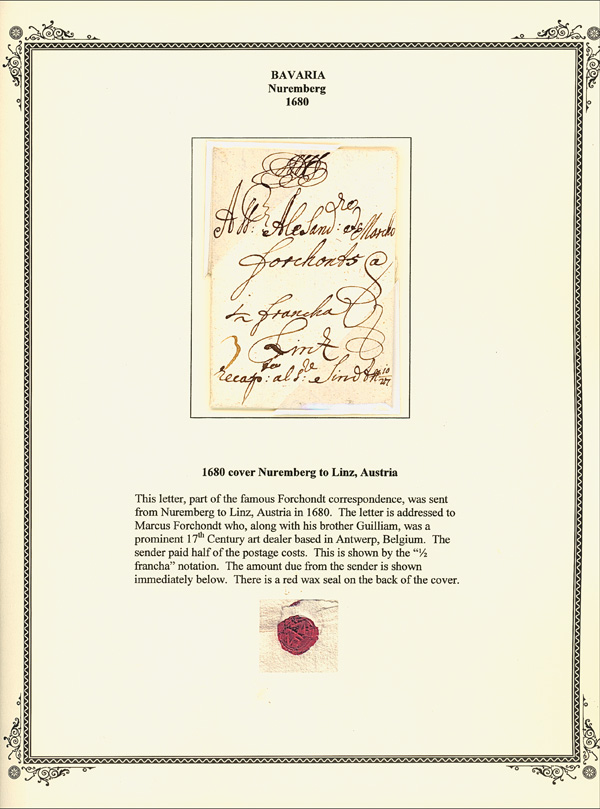 BAVARIA
Nuremberg
1680
Forchonts @
½ francha
Linz
3
1680 cover Nuremberg to Linz, Austria
This letter, part of the famous Forchondt correspondence, was sent
from Nuremberg to Linz, Austria in 1680. The letter is addressed to
Marcus Forchondt who, along with his brother Guilliam, was a
prominent 17th Century art dealer based in Antwerp, Belgium. The
sender paid half of the postage costs. This is shown by the “½
francha” notation. The amount due from the sender is shown
immediately below. There is a red wax seal on the back of the cover.